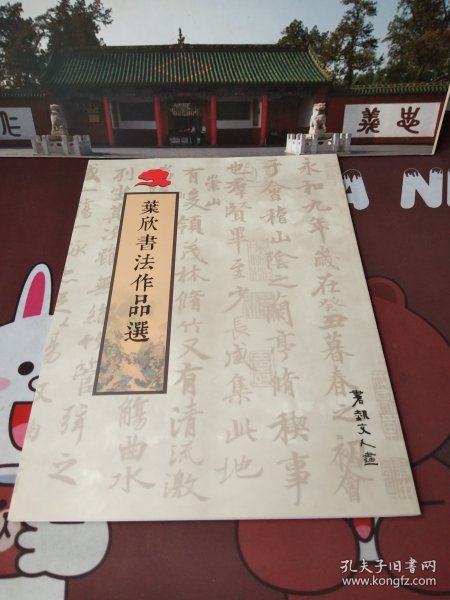 義忠
葉欣書法作品選
永和九年歲在癸丑暮春之初會
于會稽山陰之蘭亭脩禊事
也羣賢畢至少長咸集此地
崇山
有峻領茂林脩竹又有清流激
觴曲水
列坐其次雖無絲竹管弦之
盛一觴一詠
著执文人畫
A N
孔夫子旧书网
www.kongfz.com